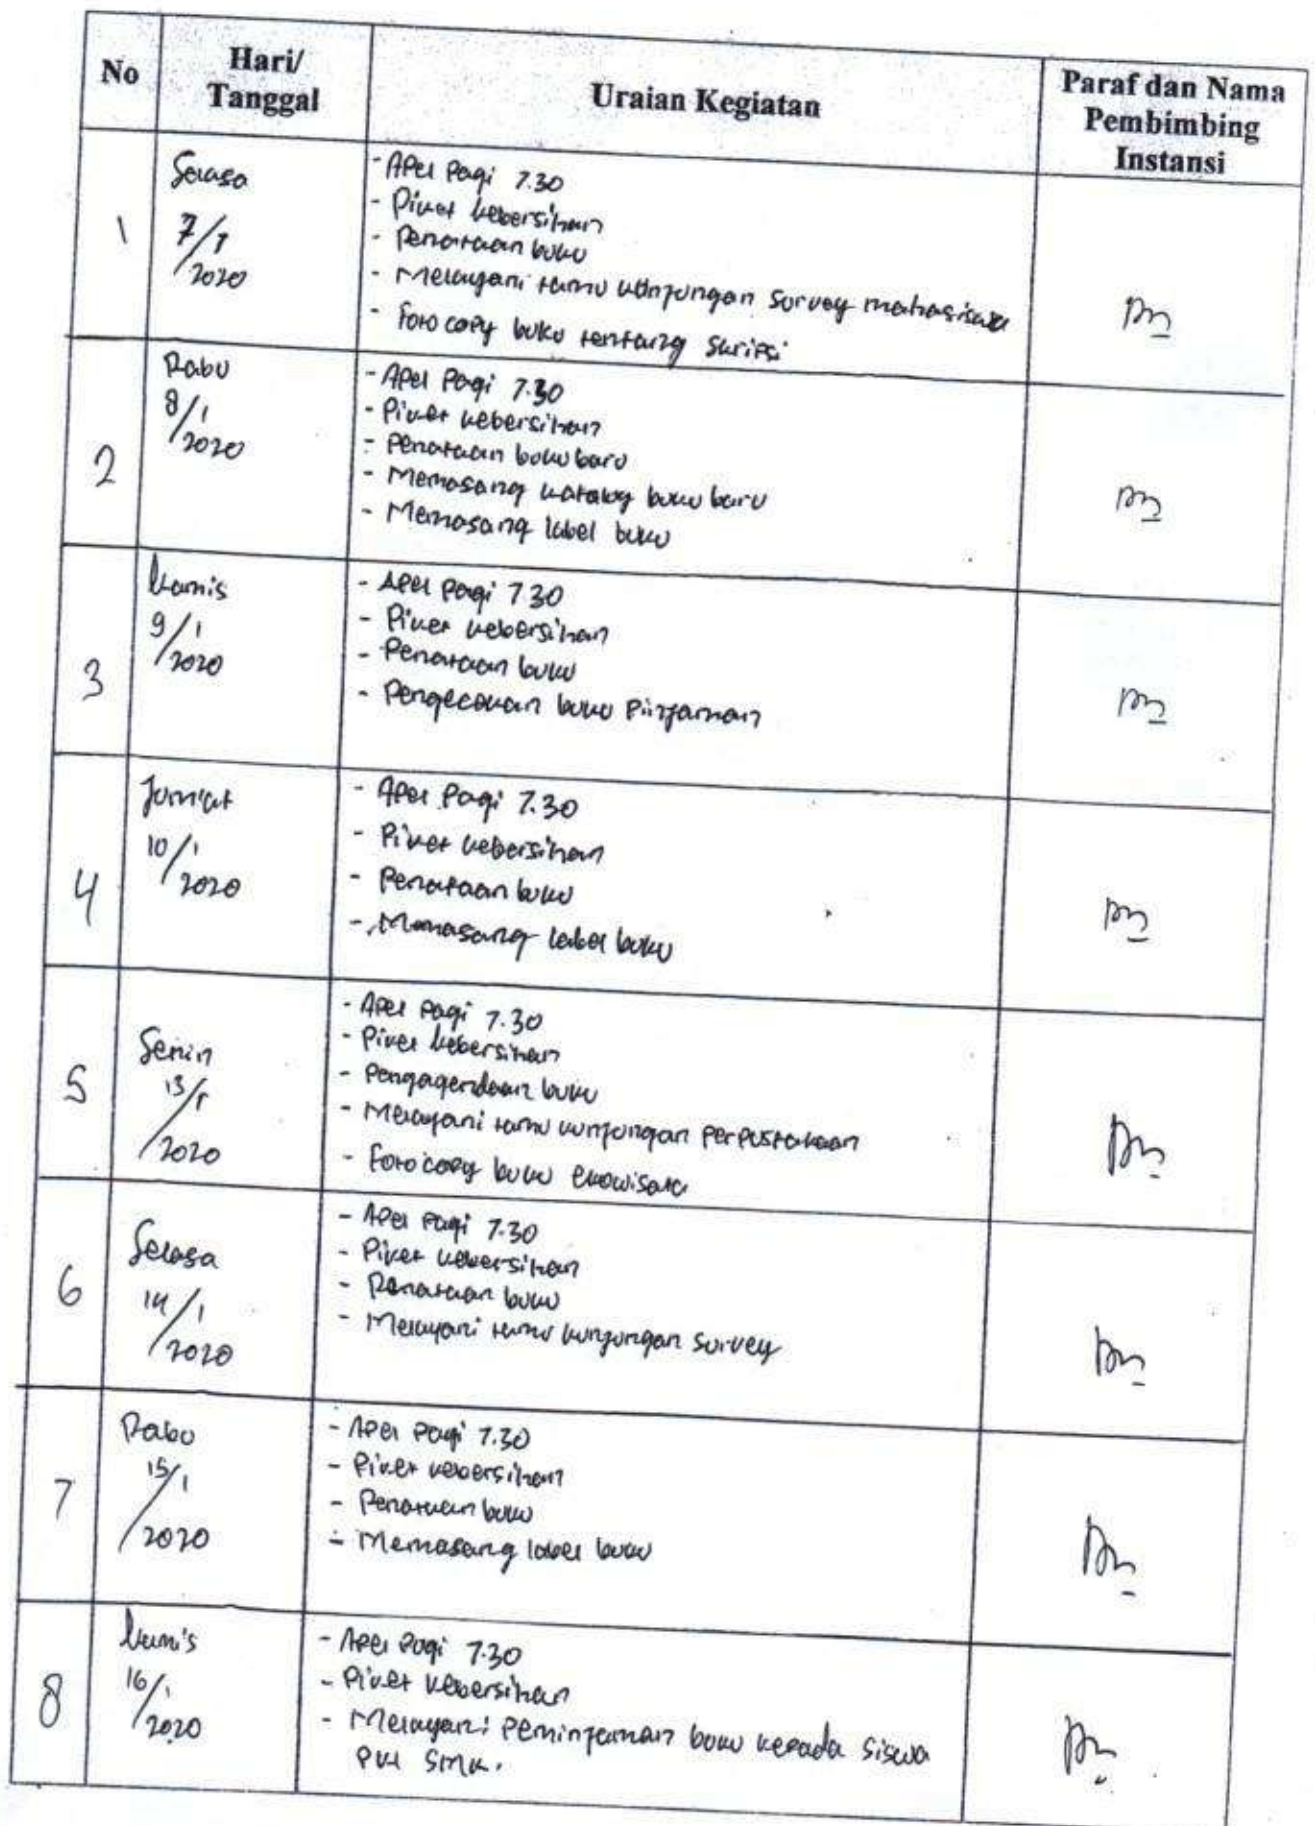 No
Hari/
Tanggal
Uraian Kegiatan
Paraf dan Nama
Pembimbing
Instansi
1
Selasa
7/1
2020
- Apel Pagi 7.30
- Piket kebersihan
- Penataan buku
- Melayani tamu kunjungan survey mahasiswa
- Foto copy buku tentang skripsi
2
Rabu
8/1
2020
- Apel Pagi 7.30
- Piket kebersihan
- Penataan buku baru
- Memasang katalog buku baru
- Memasang label buku
3
Kamis
9/1
2020
- Apel Pagi 7.30
- Piket kebersihan
- Penataan buku
- Pengecekan buku Pinjaman
4
Jum'at
10/1
2020
- Apel Pagi 7.30
- Piket kebersihan
- Penataan buku
- Memasang label buku
5
Senin
13/1
2020
- Apel Pagi 7.30
- Piket kebersihan
- Pengagendaan buku
- Melayani tamu kunjungan perpustakaan
- Foto copy buku ekowisata
6
Selasa
14/1
2020
- Apel Pagi 7.30
- Piket kebersihan
- Penataan buku
- Melayani tamu kunjungan survey
7
Rabu
15/1
2020
- Apel Pagi 7.30
- Piket kebersihan
- Penataan buku
- Memasang label buku
8
Kamis
16/1
2020
- Apel Pagi 7.30
- Piket kebersihan
- Melayani peminjaman buku kepada siswa
PKL SMK.